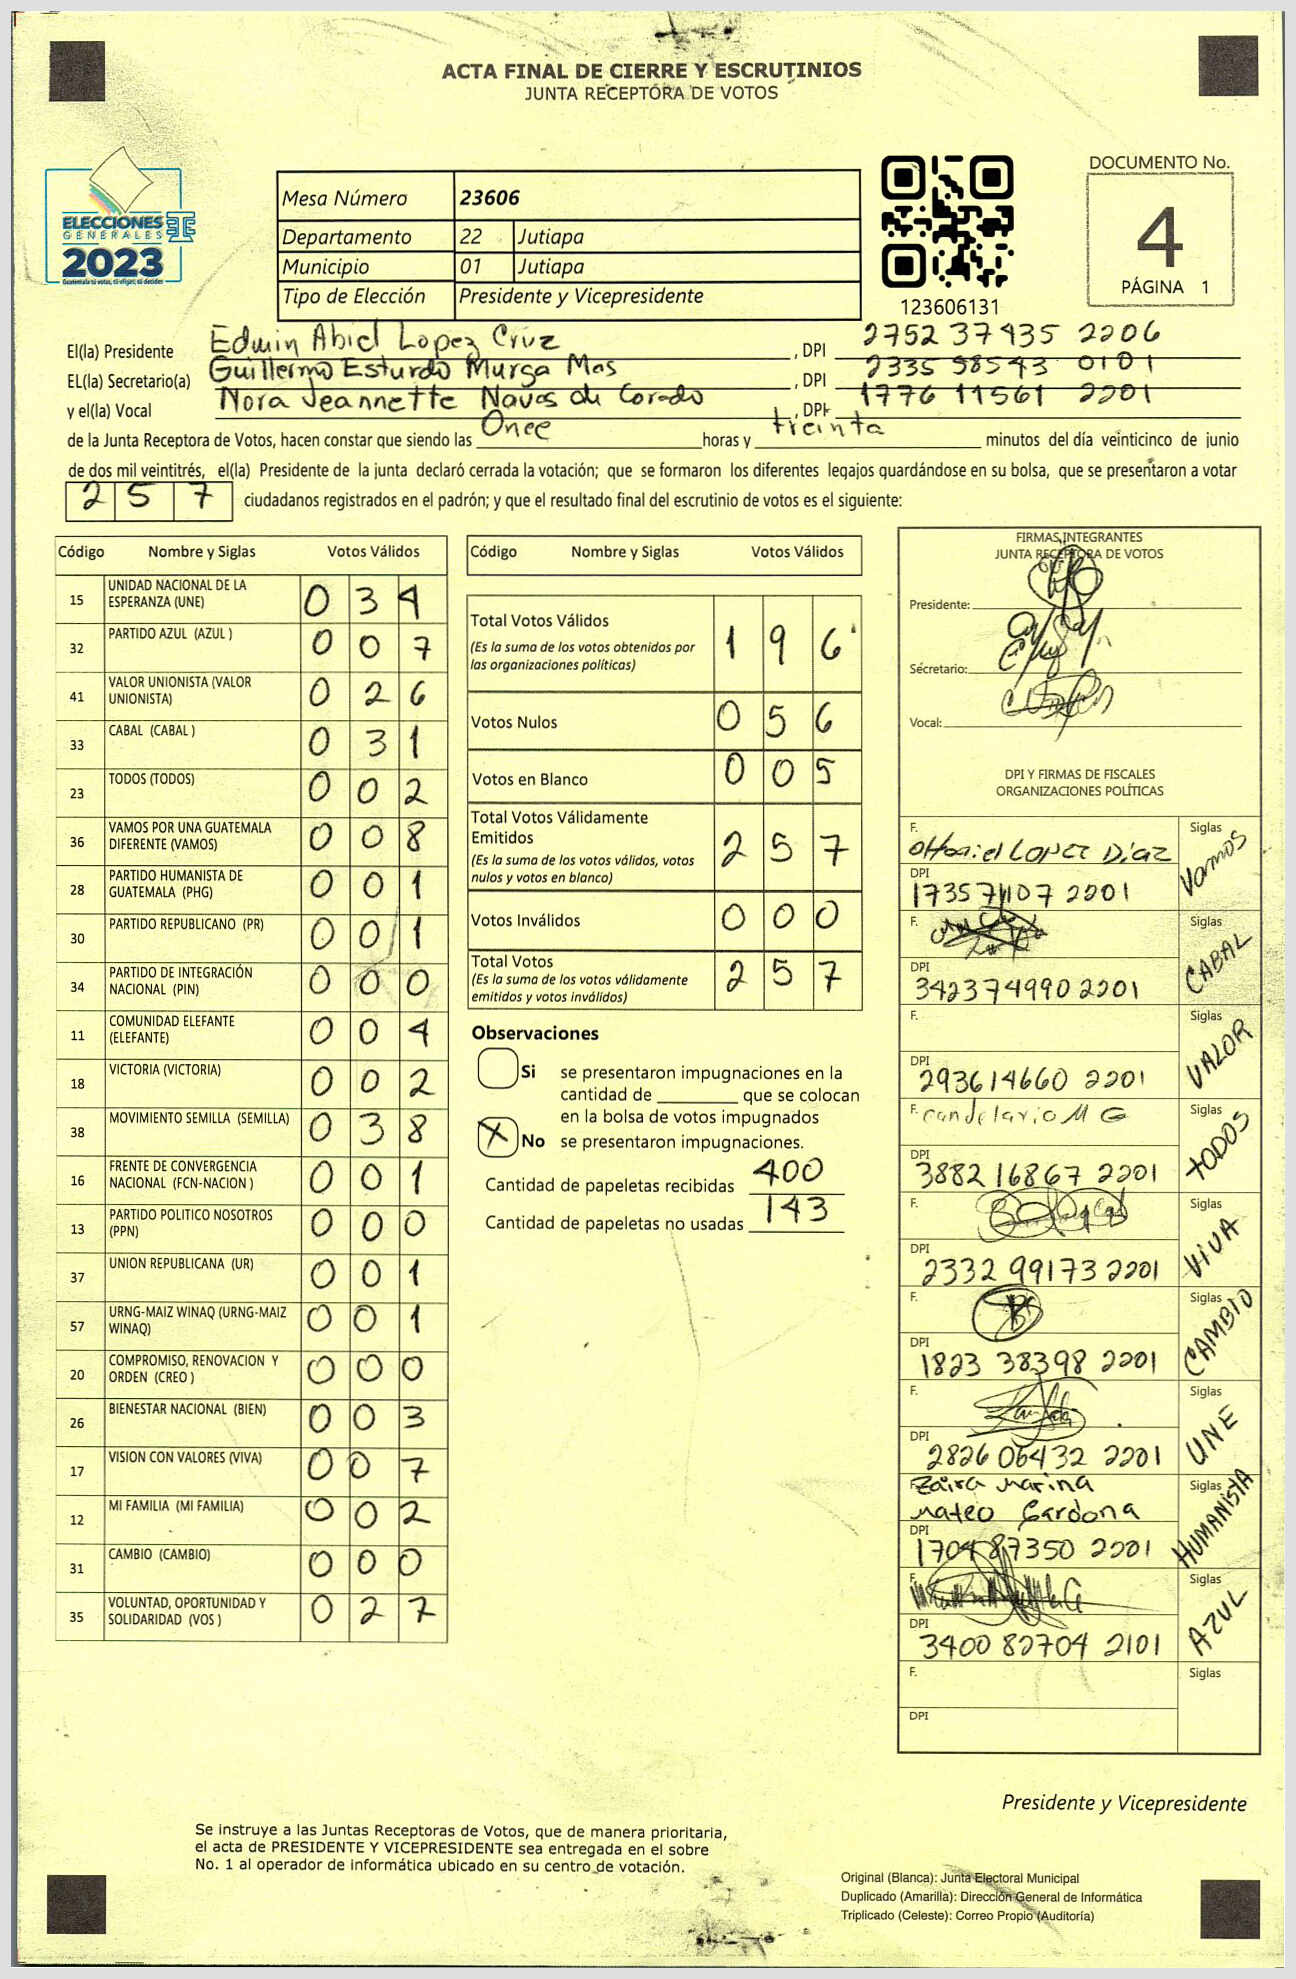 ACTA FINAL DE CIERRE Y ESCRUTINIOS
JUNTA RECEPTORA DE VOTOS
ELECCIONES
GENERALES
2023
Guatemala tú votas, tú eliges, tú decides
Mesa Número 23606
Departamento 22 Jutiapa
Municipio 01 Jutiapa
Tipo de Elección Presidente y Vicepresidente
123606131
DOCUMENTO No.
4
PÁGINA 1
El(la) Presidente Edwin Abiel Lopez Cruz , DPI 2752 37435 2206
EL(la) Secretario(a) Guillermo Esturdo Murga Mas , DPI 2335 58543 0101
y el(la) Vocal Nora Jeannette Navas de Corado , DPI 1776 11561 2201
de la Junta Receptora de Votos, hacen constar que siendo las Once horas y treinta minutos del día veinticinco de junio
de dos mil veintitrés, el(la) Presidente de la junta declaró cerrada la votación; que se formaron los diferentes legajos guardándose en su bolsa, que se presentaron a votar
257 ciudadanos registrados en el padrón; y que el resultado final del escrutinio de votos es el siguiente:
Código Nombre y Siglas Votos Válidos
15 UNIDAD NACIONAL DE LA ESPERANZA (UNE) 034
32 PARTIDO AZUL (AZUL ) 007
41 VALOR UNIONISTA (VALOR UNIONISTA) 026
33 CABAL (CABAL ) 031
23 TODOS (TODOS) 002
36 VAMOS POR UNA GUATEMALA DIFERENTE (VAMOS) 008
28 PARTIDO HUMANISTA DE GUATEMALA (PHG) 001
30 PARTIDO REPUBLICANO (PR) 001
34 PARTIDO DE INTEGRACIÓN NACIONAL (PIN) 000
11 COMUNIDAD ELEFANTE (ELEFANTE) 004
18 VICTORIA (VICTORIA) 002
38 MOVIMIENTO SEMILLA (SEMILLA) 038
16 FRENTE DE CONVERGENCIA NACIONAL (FCN-NACION ) 001
13 PARTIDO POLITICO NOSOTROS (PPN) 000
37 UNION REPUBLICANA (UR) 001
57 URNG-MAIZ WINAQ (URNG-MAIZ WINAQ) 001
20 COMPROMISO, RENOVACION Y ORDEN (CREO ) 000
26 BIENESTAR NACIONAL (BIEN) 003
17 VISION CON VALORES (VIVA) 007
12 MI FAMILIA (MI FAMILIA) 002
31 CAMBIO (CAMBIO) 000
35 VOLUNTAD, OPORTUNIDAD Y SOLIDARIDAD (VOS ) 027
Código Nombre y Siglas Votos Válidos
Total Votos Válidos 196
(Es la suma de los votos obtenidos por
las organizaciones políticas)
Votos Nulos 056
Votos en Blanco 005
Total Votos Válidamente
Emitidos 257
(Es la suma de los votos válidos, votos
nulos y votos en blanco)
Votos Inválidos 000
Total Votos 257
(Es la suma de los votos válidamente
emitidos y votos inválidos)
Observaciones
Si se presentaron impugnaciones en la
cantidad de ________ que se colocan
en la bolsa de votos impugnados
X No se presentaron impugnaciones.
Cantidad de papeletas recibidas 400
Cantidad de papeletas no usadas 143
FIRMAS INTEGRANTES
JUNTA RECEPTORA DE VOTOS
Presidente:
Secretario:
Vocal:
DPI Y FIRMAS DE FISCALES
ORGANIZACIONES POLÍTICAS
F. Othoniel LOPEZ Diaz Siglas Vamos
DPI 173571107 2201
F. Siglas CABAL
DPI 342374990 2201
F. Siglas VALOR
DPI 293614660 2201
F. candelario M G Siglas TODOS
DPI 3882 16867 2201
F. Siglas VIVA
DPI 2332 99173 2201
F. Siglas CAMBIO
DPI 1823 38398 2201
F. Siglas UNE
DPI 2826 06432 2201
F. Zaira Marina
Mateo Cardona Siglas HUMANISTA
DPI 1704 87350 2201
F. Siglas AZUL
DPI 3400 82704 2101
F. Siglas
DPI
Presidente y Vicepresidente
Se instruye a las Juntas Receptoras de Votos, que de manera prioritaria,
el acta de PRESIDENTE Y VICEPRESIDENTE sea entregada en el sobre
No. 1 al operador de informática ubicado en su centro de votación.
Original (Blanca): Junta Electoral Municipal
Duplicado (Amarilla): Dirección General de Informática
Triplicado (Celeste): Correo Propio (Auditoría)